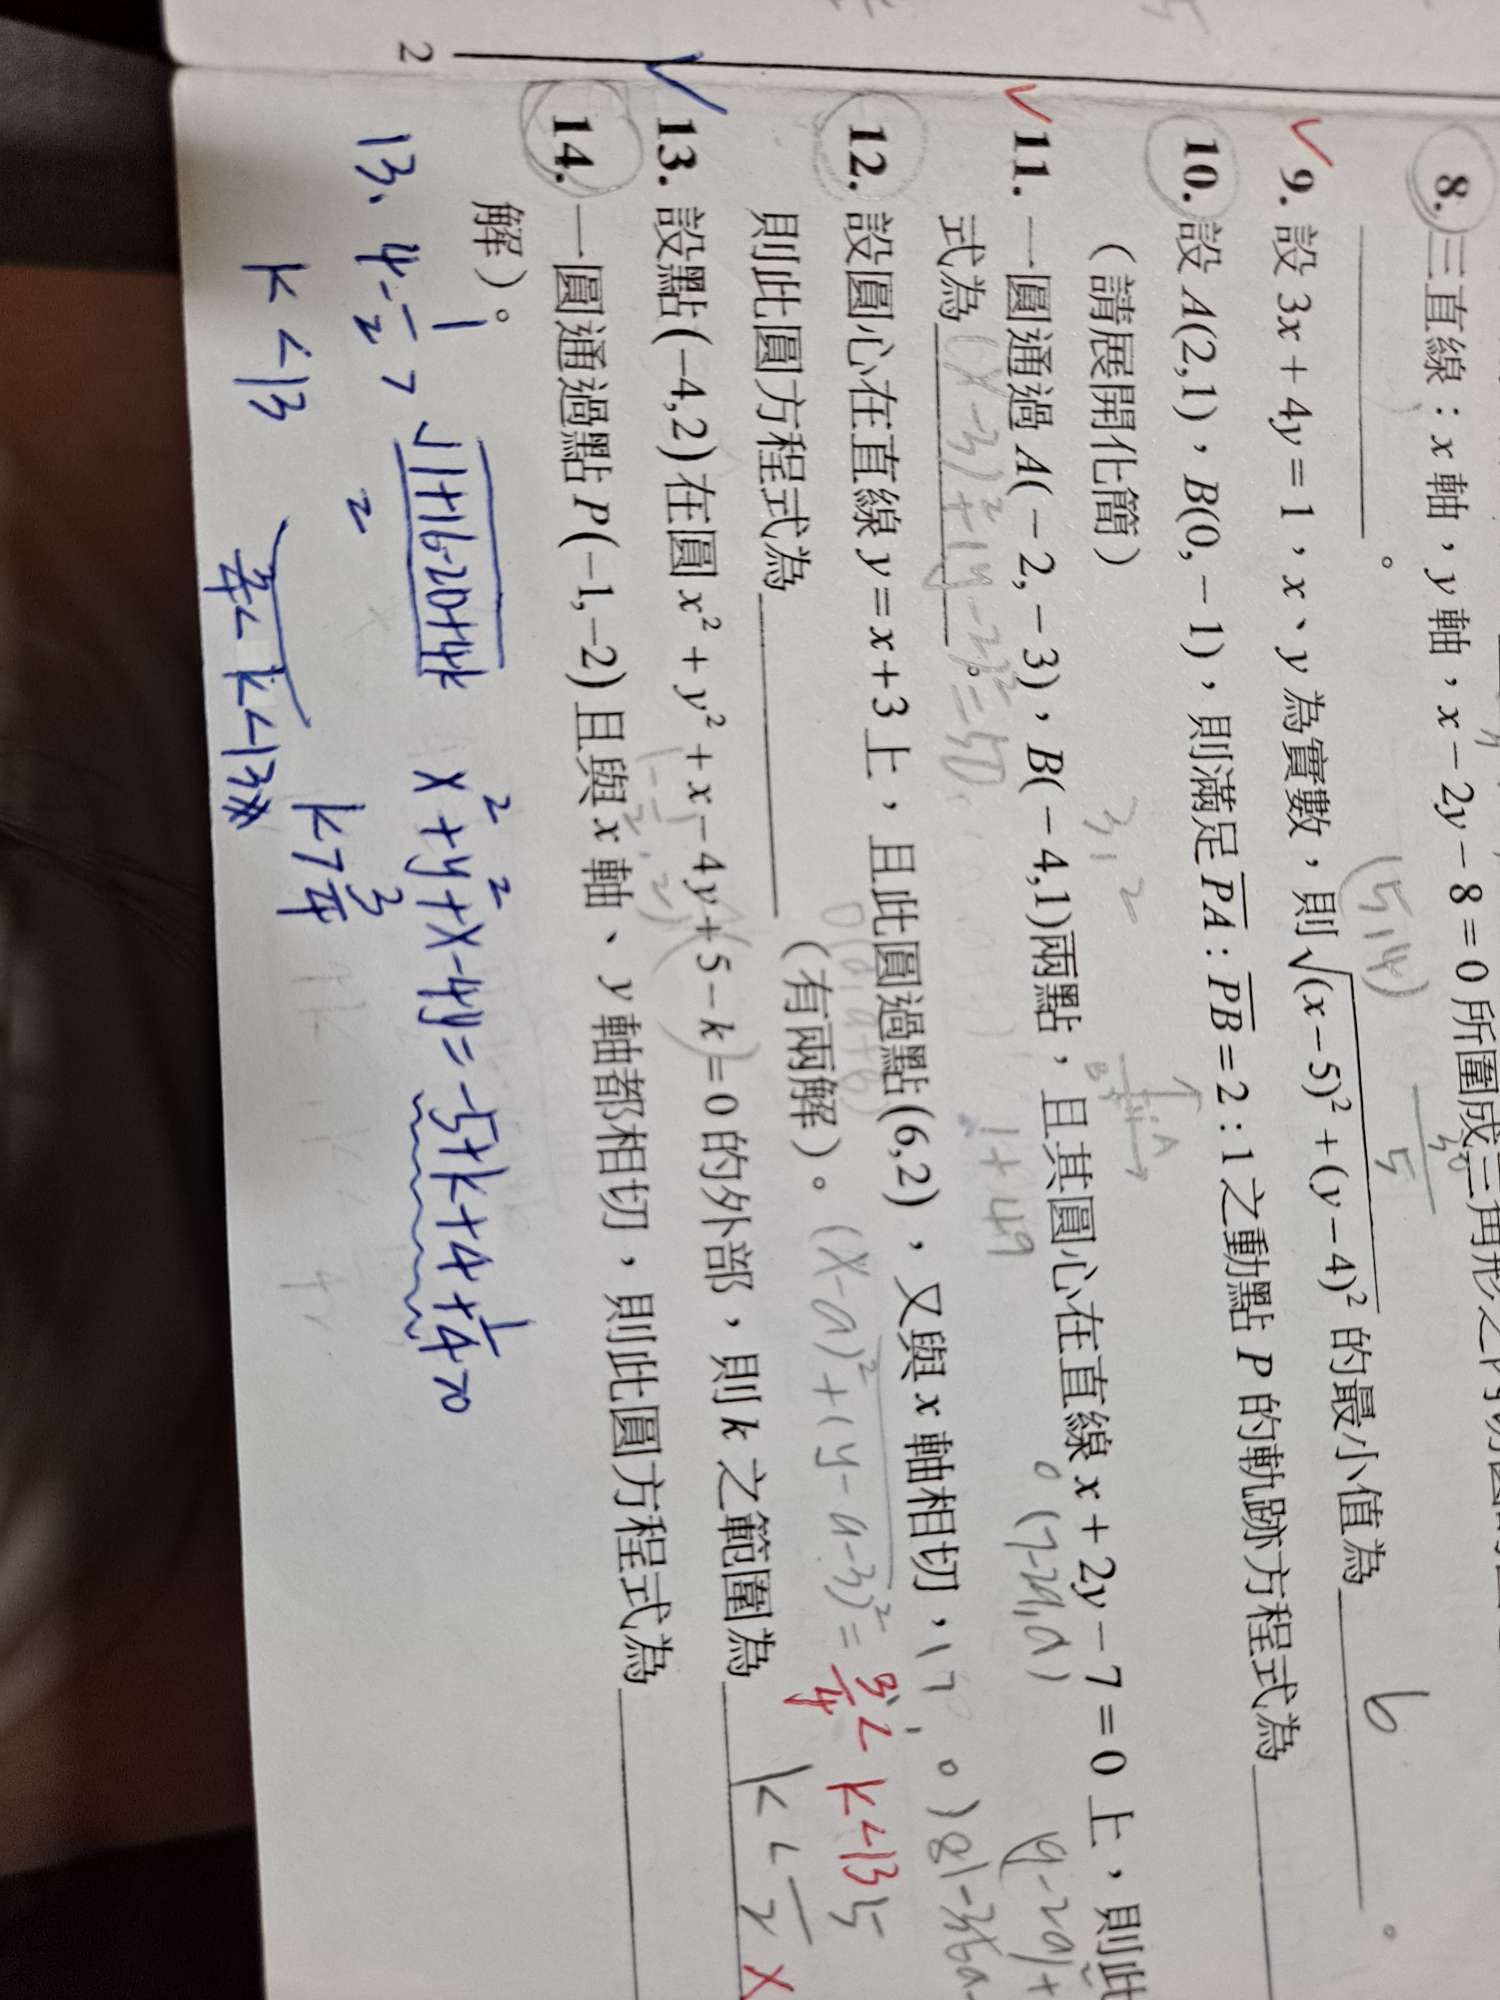 8. 三直線：x 軸，y 軸，x－2y－8＝0 所圍成三角形之內切圓
30
5
(5,4)
9. 設 3x＋4y＝1，x、y 為實數，則√(x－5)²＋(y－4)² 的最小值為 6 。
10. 設 A(2,1)，B(0,－1)，則滿足 PA：PB＝2：1 之動點 P 的軌跡方程式為
（請展開化簡）
3, 2
11. 一圓通過 A(－2,－3)，B(－4,1)兩點，且其圓心在直線 x＋2y－7＝0 上，則此
式為 (x-3)²+(y-2)²=50 。
1+49
(7-2a,a)
12. 設圓心在直線 y＝x＋3 上，且此圓過點(6,2)，又與 x 軸相切，
則此圓方程式為（有兩解）。
(x-a)²+(y-a-3)²=
3/4 < k < 13
13. 設點(－4,2)在圓 x²＋y²＋x－4y＋5－k＝0 的外部，則 k 之範圍為 k<
14. 一圓通過點 P(－1,－2)且與 x 軸、y 軸都相切，則此圓方程式為
解）。
13、 4-1/2 > √1+16-20+4k / 2
x²+y²+x-4y=-5+k+4+1/4>0
k<13
k>3/4
3/4<k<13